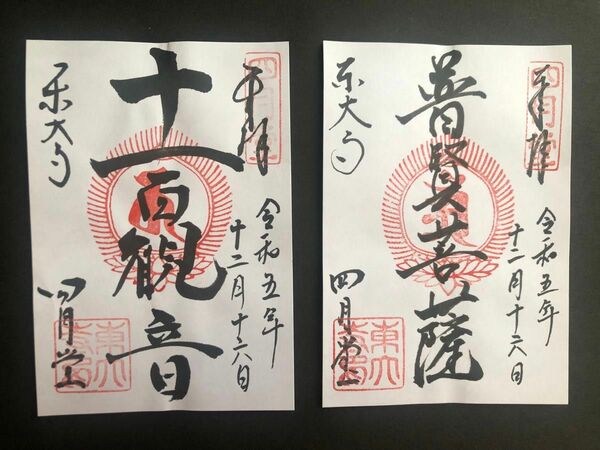 奉拝
令和五年
十二月十六日
十一面観音
東大寺
四月堂
奉拝
令和五年
十二月十六日
普賢菩薩
東大寺
四月堂